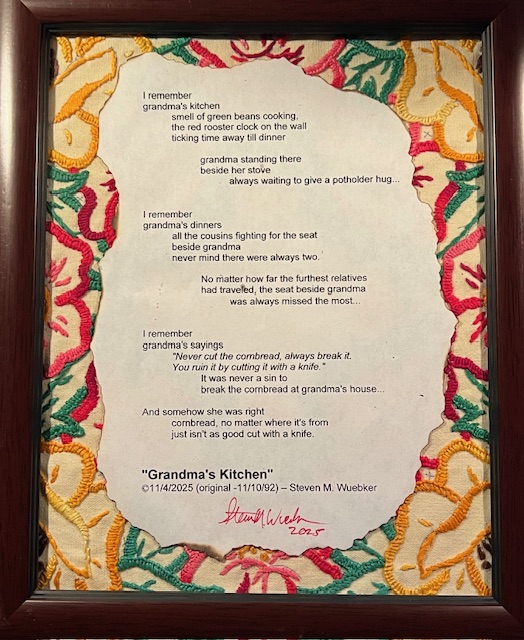 I remember
grandma's kitchen
smell of green beans cooking,
the red rooster clock on the wall
ticking time away till dinner
grandma standing there
beside her stove
always waiting to give a potholder hug...
I remember
grandma's dinners
all the cousins fighting for the seat
beside grandma
never mind there were always two.
No matter how far the furthest relatives
had traveled, the seat beside grandma
was always missed the most...
I remember
grandma's sayings
"Never cut the cornbread, always break it.
You ruin it by cutting it with a knife."
It was never a sin to
break the cornbread at grandma's house...
And somehow she was right
cornbread, no matter where it's from
just isn't as good cut with a knife.
"Grandma's Kitchen"
©11/4/2025 (original -11/10/92) – Steven M. Wuebker
Steven M Wuebker
2025